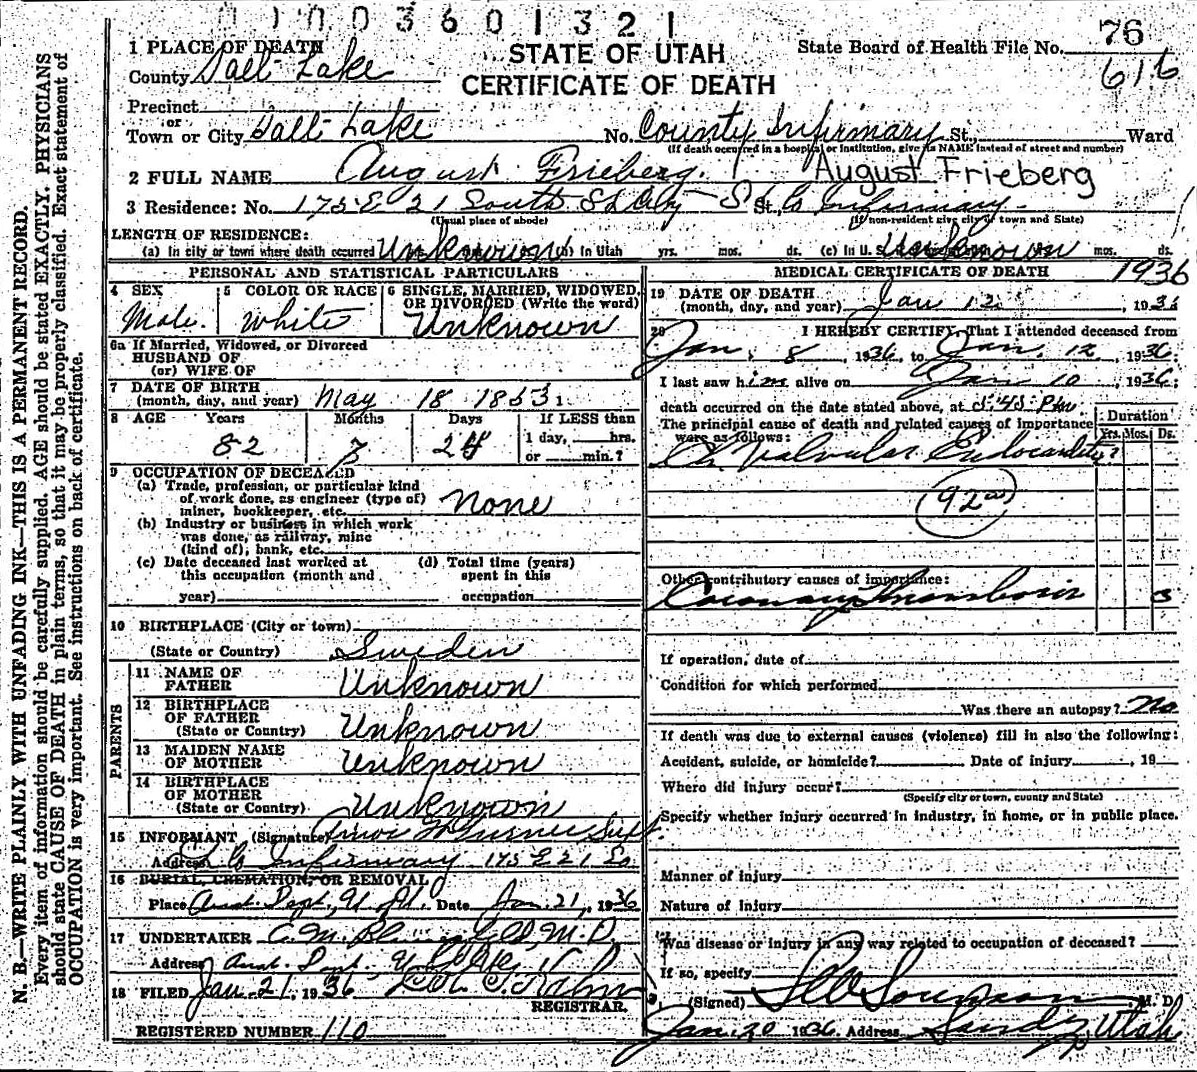 1003601321
76
616
STATE OF UTAH
CERTIFICATE OF DEATH
State Board of Health File No.
1 PLACE OF DEATH
County Salt Lake
Precinct
or
Town or City Salt Lake No. County Infirmary St., Ward
(If death occurred in a hospital or institution, give its NAME instead of street and number)
2 FULL NAME August Frieberg. August Frieberg
3 Residence: No. 175 E 21 South St. Co Infirmary
(Usual place of abode) (If non-resident give city or town and State)
LENGTH OF RESIDENCE:
(a) In city or town where death occurred Unknown (b) In Utah yrs. mos. ds. (c) In U. S. Unknown mos. ds.
PERSONAL AND STATISTICAL PARTICULARS
4 SEX
Male.
5 COLOR OR RACE
White
6 SINGLE, MARRIED, WIDOWED, OR DIVORCED (Write the word)
Unknown
6a If Married, Widowed, or Divorced
HUSBAND OF
(or) WIFE OF
7 DATE OF BIRTH
(month, day, and year) May 18 1853
8 AGE Years Months Days If LESS than
82 7 24 1 day, hrs.
or min.?
9 OCCUPATION OF DECEASED
(a) Trade, profession, or particular kind
of work done, as engineer (type of)
miner, bookkeeper, etc. None
(b) Industry or business in which work
was done, as railway, mine
(kind of), bank, etc.
(c) Date deceased last worked at
this occupation (month and
year)
(d) Total time (years)
spent in this
occupation
10 BIRTHPLACE (City or town)
(State or Country) Sweden
PARENTS
11 NAME OF
FATHER Unknown
12 BIRTHPLACE
OF FATHER
(State or Country) Unknown
13 MAIDEN NAME
OF MOTHER Unknown
14 BIRTHPLACE
OF MOTHER
(State or Country) Unknown
15 INFORMANT (Signature) Supt.
Address Co Infirmary 175 E 21 So
16 BURIAL, CREMATION, OR REMOVAL
Place Anat. Dept., U. of U. Date Jan. 21, 1936
17 UNDERTAKER C. M. M.D.
Address Anat. Dept.
18 FILED Jan. 21, 1936
REGISTRAR.
REGISTERED NUMBER 110
MEDICAL CERTIFICATE OF DEATH 1936
19 DATE OF DEATH
(month, day, and year) Jan 12 1936
20 I HEREBY CERTIFY, That I attended deceased from
Jan. 8, 1936, to Jan. 12, 1936.
I last saw him alive on Jan 10, 1936;
death occurred on the date stated above, at 5:45 Pm.
The principal cause of death and related causes of importance
were as follows:
Duration
Yrs. Mos. Ds.
Ch. Valvular Endocarditis ?
92
Other contributory causes of importance:
Coronary Thrombosis 3
If operation, date of
Condition for which performed
Was there an autopsy? No
If death was due to external causes (violence) fill in also the following:
Accident, suicide, or homicide? Date of injury , 19
Where did injury occur?
(Specify city or town, county and State)
Specify whether injury occurred in industry, in home, or in public place.
Manner of injury
Nature of injury
Was disease or injury in any way related to occupation of deceased?
If so, specify
(Signed) , M. D.
Jan. 20 1936 Address Sandy, Utah
N. B.—WRITE PLAINLY WITH UNFADING INK—THIS IS A PERMANENT RECORD.
Every item of information should be carefully supplied. AGE should be stated EXACTLY. PHYSICIANS
should state CAUSE OF DEATH in plain terms, so that it may be properly classified. Exact statement of
OCCUPATION is very important. See instructions on back of certificate.